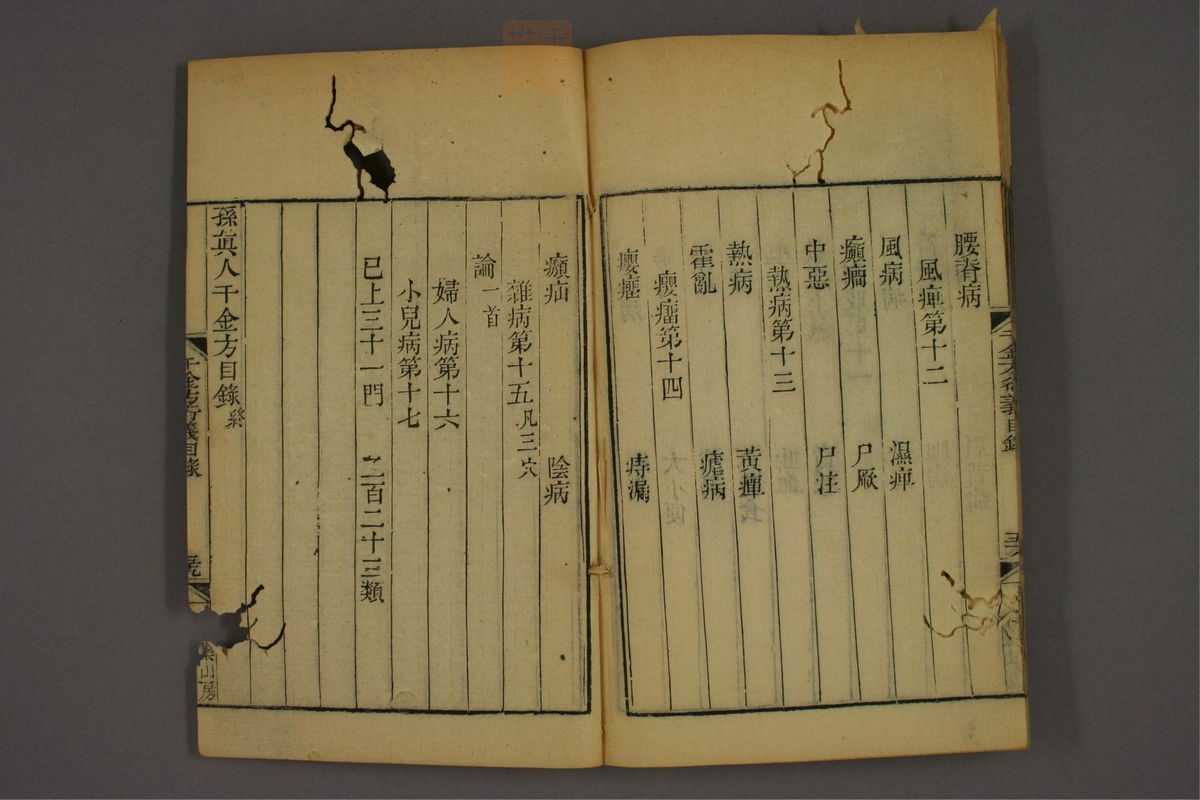 腰脊病
風痺第十二
風病 濕痺
癲癎 尸厥
中惡 尸注
熱病第十三
熱病 黃疸
霍亂 瘧病
癭瘤第十四
癭瘤 痔漏
㿗疝 陰病
雜病第十五凡三穴
論一首
婦人病第十六
小兒病第十七
已上三十一門 二百二十三類
孫眞人千金方目錄終
千金方衍義目錄
山房